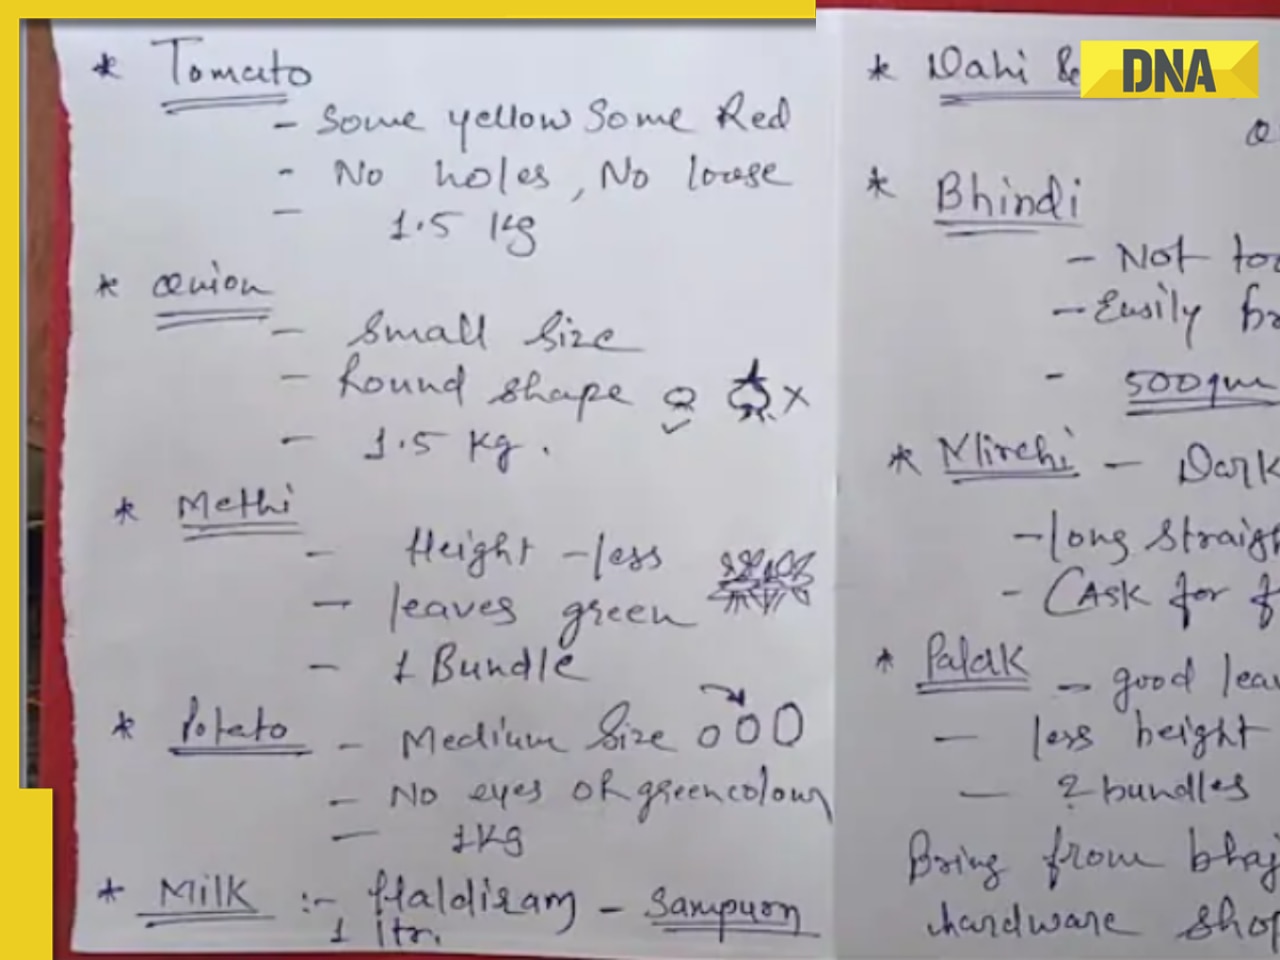 * Tomato
- Some yellow Some Red
- No holes, No loose
- 1.5 Kg
* Onion
- Small Size
- Round shape
- 1.5 Kg.
* Methi
- Height - less
- leaves green
- 1 Bundle
* Potato - Medium Size
- No eyes or green colour
- 1 Kg
* Milk :- Haldiram - Sampurn
1 ltr.
* Dahi &
DNA
* Bhindi
- Not too
- Easily br
- 500gm
* Mirchi - Dark
- long straigh
- (Ask for f
* Palak - good leav
- less height
- 2 bundles
Bring from bhaj
hardware shop